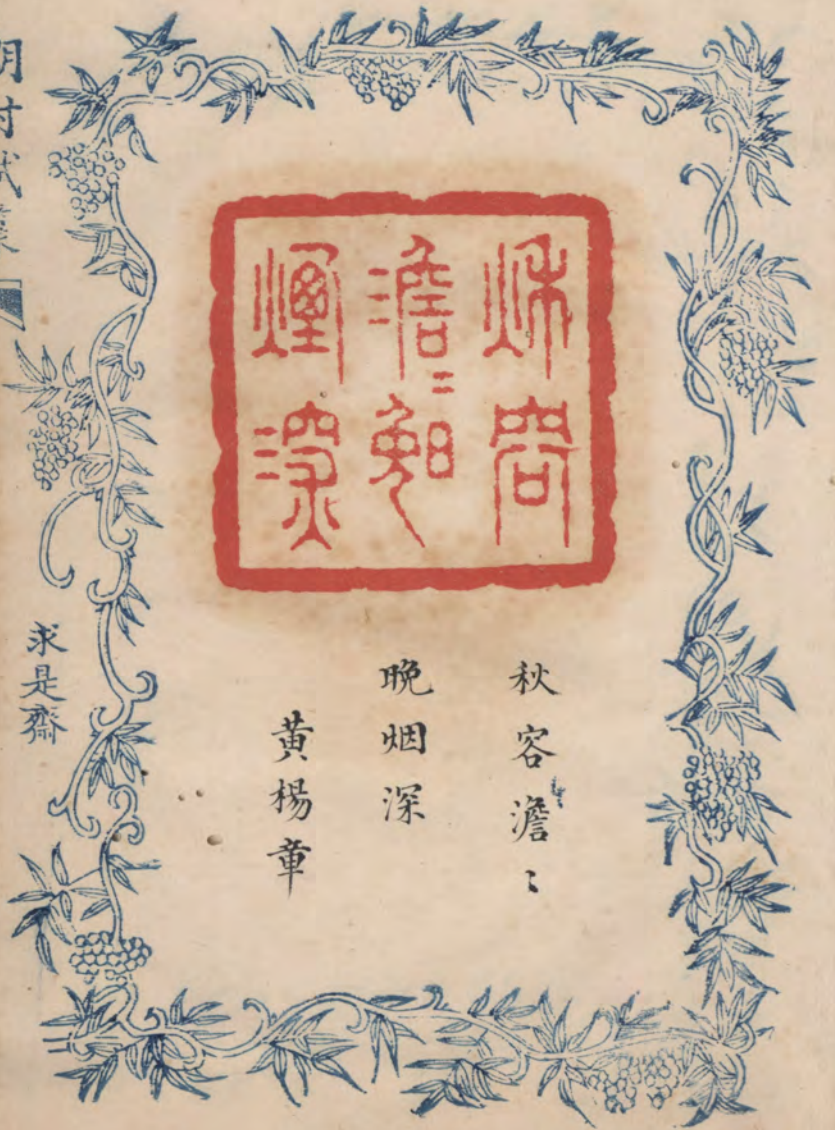 秋容澹〻
晚烟深
秋容
澹〻晚
煙深
黄楊章
求是齋